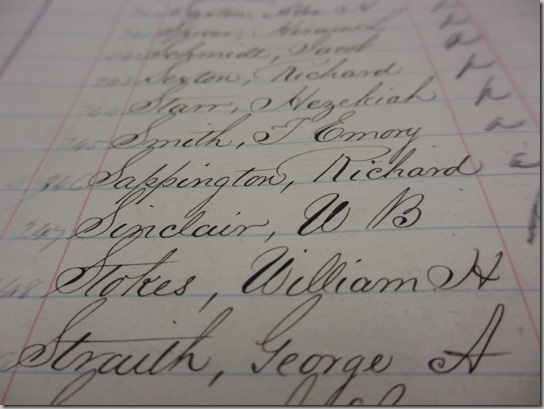 Schmidt, Jacob
Sexton, Richard
244 Starr, Hezekiah
245 Smith, T Emory
246 Sappington, Richard
247 Sinclair, W B
248 Stokes, William H
Straith, George A